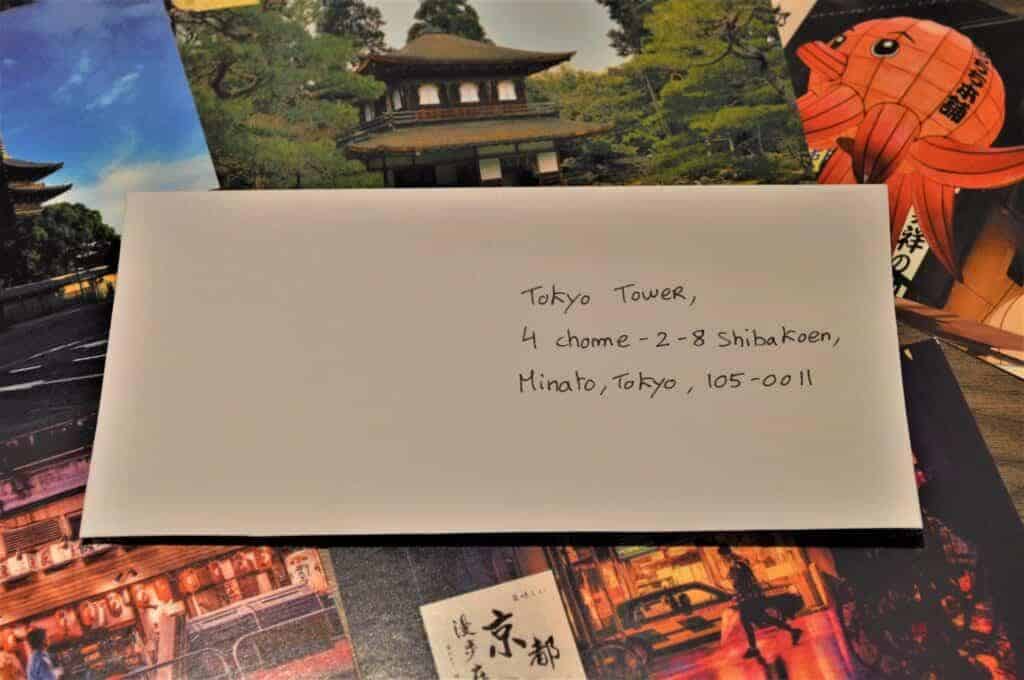 Tokyo Tower,
4 chome-2-8 Shibakoen,
Minato, Tokyo, 105-0011
京都
漫步在